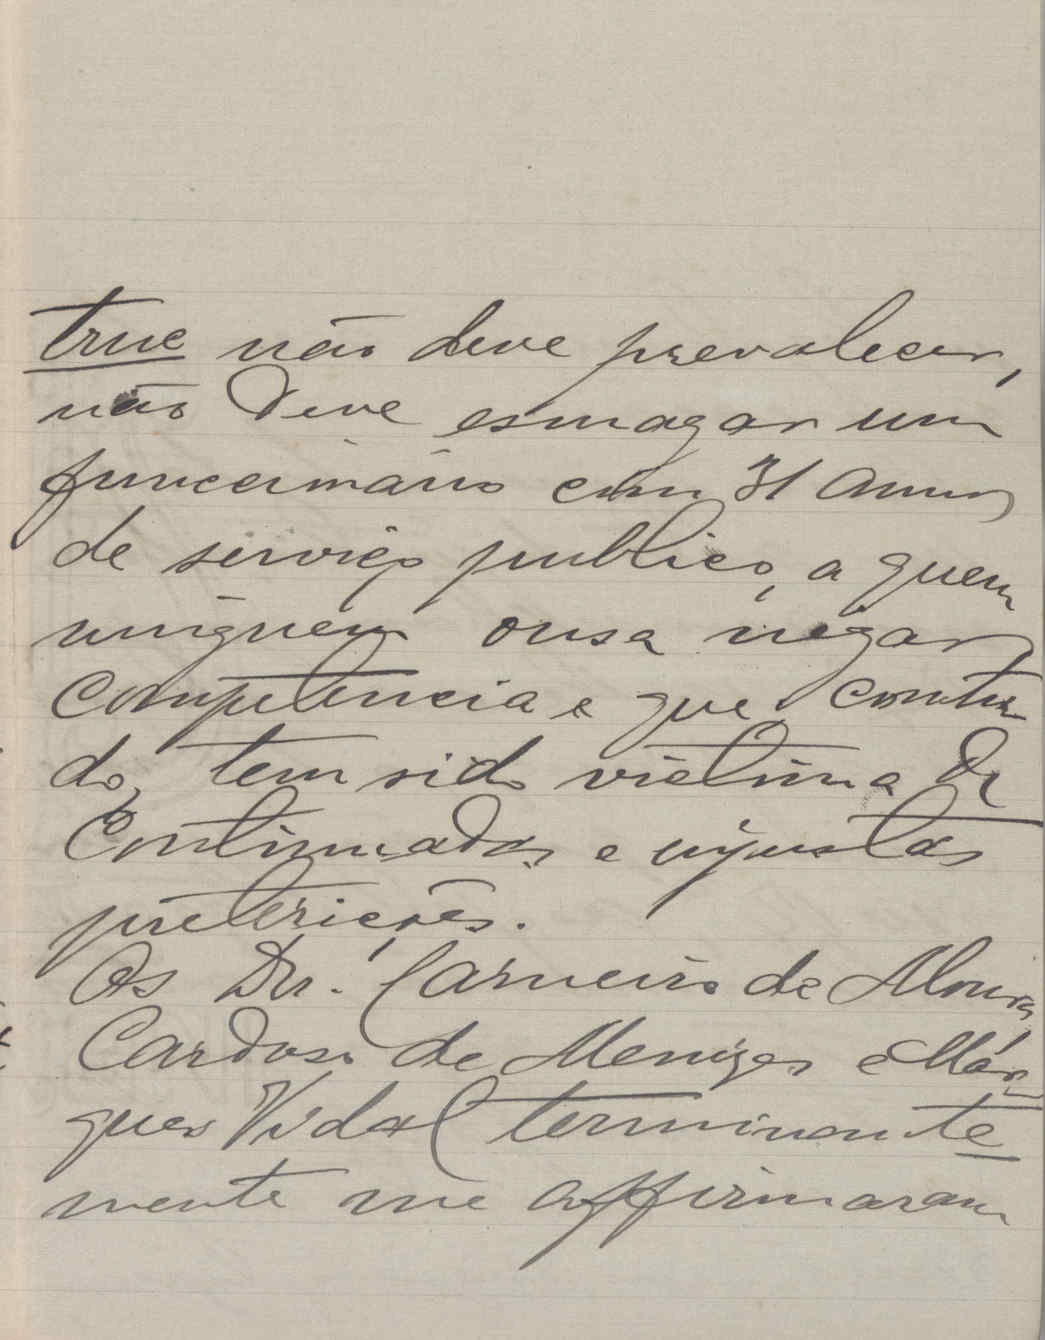 truc não deve prevalecer,
não deve esmagar um
funccionário com 31 annos
de serviço publico, a quem
ninguem ousa negar
competencia e que contu-
do, tem sido victima de
continuadas e injustas
preterições.
Os Drs. Carneiro de Moura,
Cardoso de Menezes e Mar-
ques Vidal terminante
mente me affirmaram